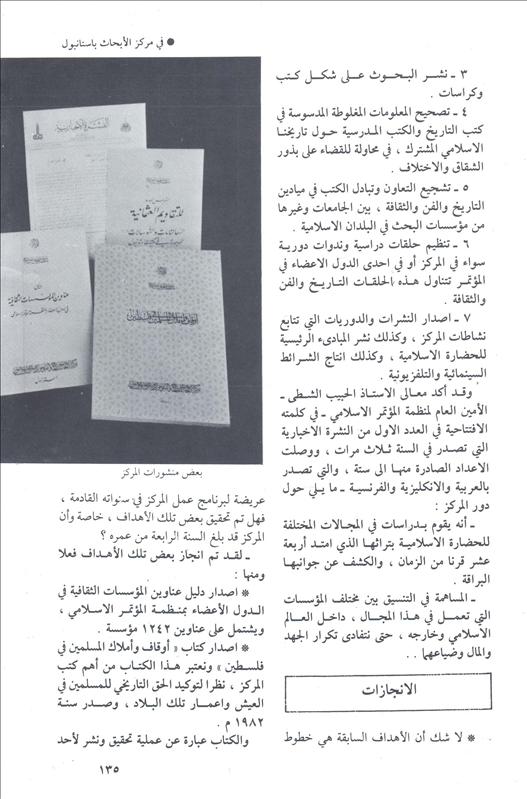 ● في مركز الأبحاث باستانبول
٣ ـ نشـر البـحـوث عـلـى شكـل كـتـب
وكراسات .
٤ ـ تصحيح المعلومات المغلوطة المدسوسة في
كتب التاريخ والكتب المـدرسية حـول تاريخنـا
الاسلامي المشترك ، في محاولة للقضاء على بذور
الشقاق والاختلاف .
٥ ـ تشجيع التعاون وتبادل الكتب في ميادين
التاريخ والفن والثقافة ، بين الجامعات وغيرها
من مؤسسات البحث في البلدان الاسلامية .
٦ ـ تنظيم حلقات دراسية وندوات دوريـة
سواء في المركز أو في احدى الدول الاعضاء في
المؤتمـر تتناول هـذه الحلقـات التـاريـخ والفن
والثقافة .
٧ ـ اصدار النشرات والدوريات التي تتابع
نشاطات المركز ، وكذلك نشر المبادىء الرئيسية
للحضارة الاسلامية ، وكذلك انتاج الشرائط
السينمائية والتلفزيونية .
وقـد أكد معـالى الاستـاذ الحبيب الشـطى ـ
الأمين العام لمنظمة المؤتمر الاسلامي ـ في كلمته
الافتتاحية في العدد الاول من النشرة الاخبارية
التي تصـدر في السنة ثـلاث مرات ، ووصلت
الاعداد الصادرة منهـا الى ستة ، والتي تصـدر
بالعربية والانكليزية والفرنسيـة ـ مـا يـلي حول
دور المركز :
ـ أنه يقوم بـدراسات في المجـالات المختلفة
للحضارة الاسلاميـة بتراثهـا الذي امتـد أربعة
عشر قرنا من الزمان ، والكشف عن جوانبهـا
البراقة .
ـ المساهمة في التنسيق بين مختلف المؤسسات
التي تعمـل في هـذا المجـال ، داخـل العـالم
الاسلامي وخارجه ، حتى نتفادى تكرار الجهد
والمال وضياعهما . .
الانجازات
* لا شك أن الأهداف السابقة هي خطوط
بعض منشورات المركز
عريضة لبرنامج عمل المركز في سنواته القادمة ،
فهل تم تحقيق بعض تلك الأهداف ، خاصة وأن
المركز قد بلغ السنة الرابعة من عمره ؟
ـ لقـد تم انجاز بعض تلك الأهـداف فعلا
ومنها :
* اصدار دليل عناوين المؤسسات الثقافية في
الـدول الأعضاء بمنـظمـة المؤتمـر الاسـلامي ،
ويشتمل على عناوين ١٢٤٢ مؤسسة .
* اصدار كتاب « أوقاف وأملاك المسلمين في
فلسطين » ونعتبر هـذا الكتـاب من أهم كتب
المركز ، نظرا لتوكيد الحق التاريخي للمسلمين في
العيش واعمـار تلك البـلاد ، وصـدر سنـة
١٩٨٢ م .
والكتاب عبارة عن عملية تحقيق ونشر لأحد
١٣٥